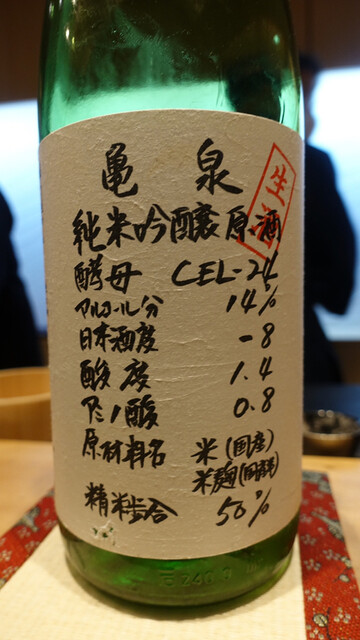 亀泉
生酒
純米吟醸原酒
酵母 CEL-24
アルコール分 14%
日本酒度 -8
酸度 1.4
アミノ酸 0.8
原材料名 米(国産)
米麹(国産米)
精米歩合 50%